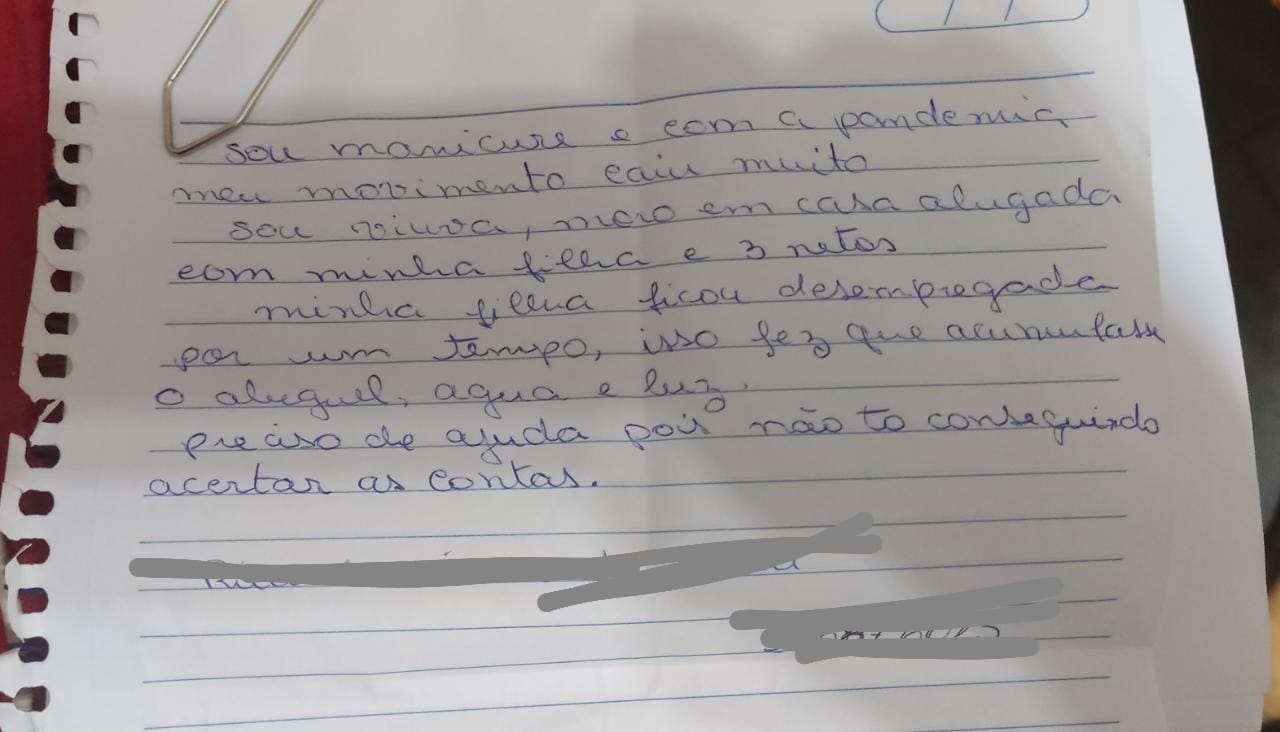 sou manicure e com a pandemia
meu movimento caiu muito
sou viuva, moro em casa alugada
com minha filha e 3 netos
minha filha ficou desempregada
por um tempo, isso fez que acumulasse
o aluguel, agua e luz.
preciso de ajuda pois não to conseguindo
acertar as contas.